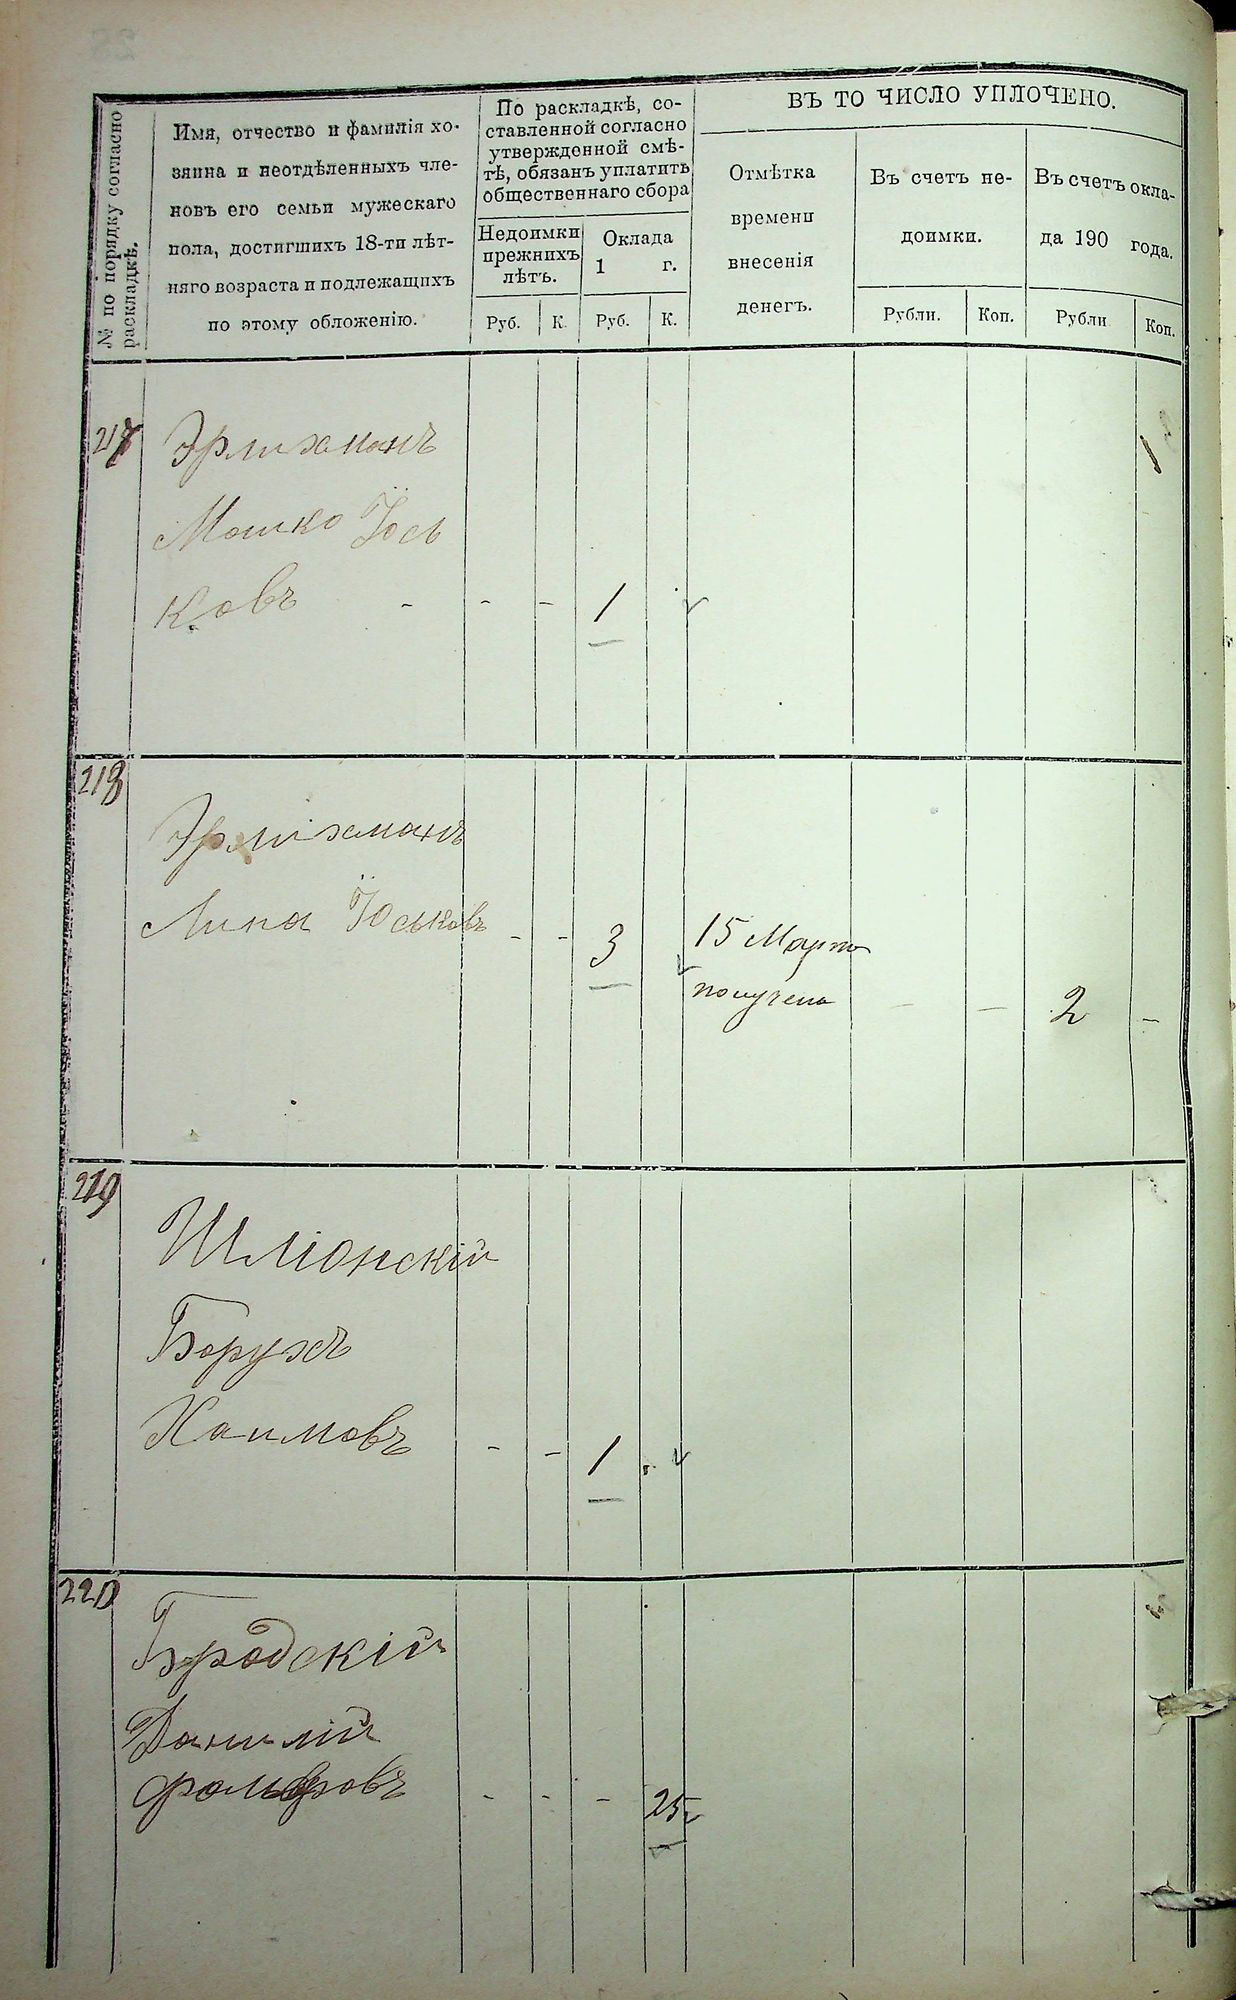 № по порядку согласно
раскладкѣ.
Имя, отчество и фамилія хо-
зяина и неотдѣленныхъ чле-
новъ его семьи мужескаго
пола, достигшихъ 18-ти лѣт-
няго возраста и подлежащихъ
по этому обложенію.
По раскладкѣ, со-
ставленной согласно
утвержденной смѣ-
тѣ, обязанъ уплатить
общественнаго сбора
Недоимки
прежнихъ
лѣтъ.
Оклада
1 г.
Руб. К. Руб. К.
ВЪ ТО ЧИСЛО УПЛОЧЕНО.
Отмѣтка
времени
внесенія
денегъ.
Въ счетъ не-
доимки.
Въ счетъ окла-
да 190 года.
Рубли. Коп. Рубли Коп.
217 Эрлихманъ
Мошко Іось
ковъ - - - 1
218
Эрлихманъ
Липа Іоськовъ - - 3 15 Марта
получено - - 2 -
219
Шліонскій
Борухъ
Хаимовъ - - 1
220
Бродскій
Данилій
- - - 25